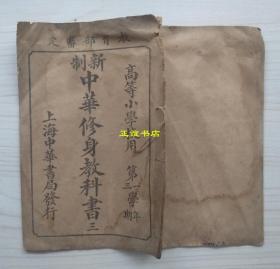 教育部審定
高等小學校用
第一學年
第三學期
新制
中華修身教科書 三
上海中華書局發行
正誼书店